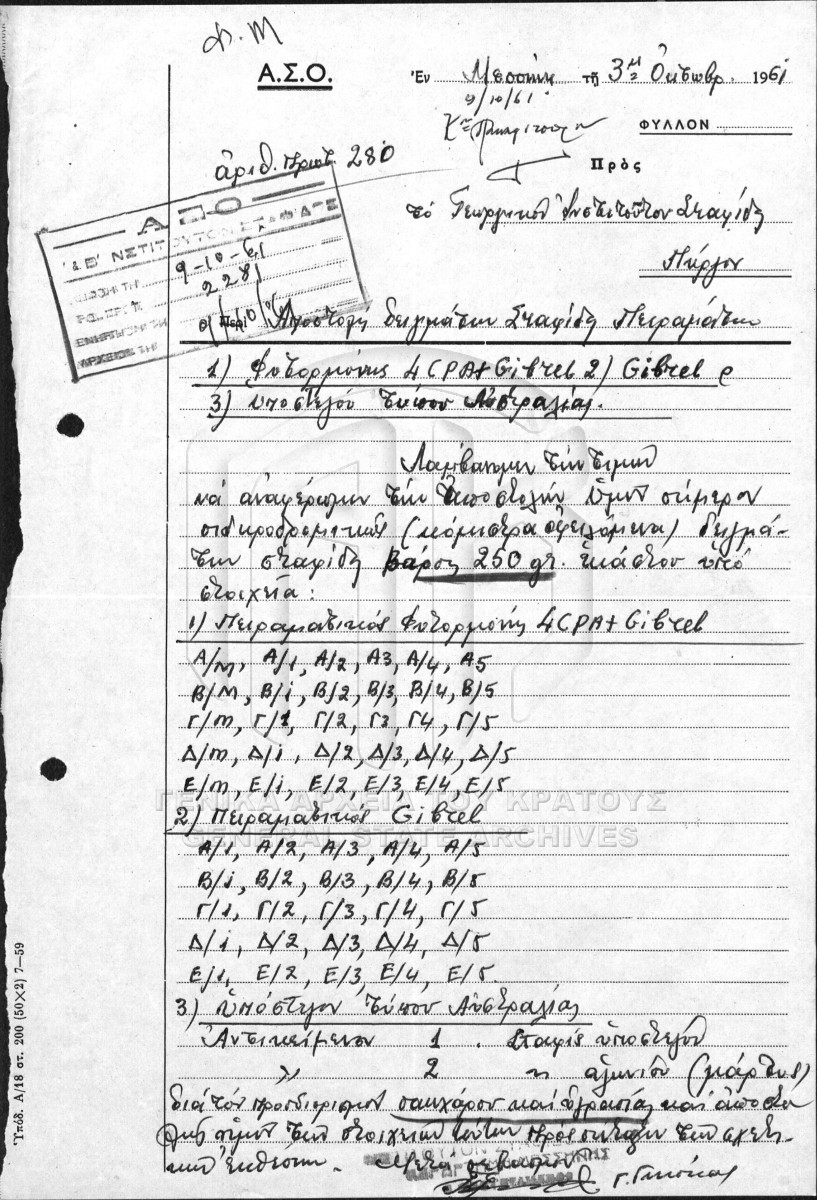 Φ. Μ
Α.Σ.Ο.
Ἐν Μεσσήνῃ τῇ 3η Ὀκτωβρ. 1961
9/10/61
ΦΥΛΛΟΝ
Πρὸς
ἀριθ. πρωτ. 280
Α Σ Ο
ΙΝΣΤΙΤΟΥΤΟΝ ΣΤΑΦΙΔΟΣ
9-10-61
228
τό Γεωργικόν Ἰνστιτοῦτον Σταφίδος
Πύργον
Περί Ἀποστολῆς δειγμάτων Σταφίδος Πειραμάτων
1) Φυτορμόνης 4CPA+Gibrel 2) Gibrel
3) ὑποστέγου τύπου Αὐστραλίας.
Λαμβάνομεν τήν τιμήν
νά ἀναφέρωμεν τήν ἀποστολήν ὑμῖν σήμερον
σιδηροδρομικῶς (κόμιστρα ὀφειλόμενα) δειγμά-
των σταφίδος βάρους 250 gr. ἑκάστου ὑπό
στοιχεῖα:
1) Πειραματικός Φυτορμόνης 4CPA+Gibrel
Α/m, Α/1, Α/2, Α3, Α/4, Α5
Β/m, Β/1, Β/2, Β/3, Β/4, Β/5
Γ/m, Γ/1, Γ/2, Γ3, Γ4, Γ/5
Δ/m, Δ/1, Δ/2, Δ/3, Δ/4, Δ/5
Ε/m, Ε/1, Ε/2, Ε/3, Ε/4, Ε/5
ΓΕΝΙΚΑ ΑΡΧΕΙΑ ΤΟΥ ΚΡΑΤΟΥΣ
2) Πειραματικός Gibrel
GENERAL STATE ARCHIVES
Α/1, Α/2, Α/3, Α/4, Α/5
Β/1, Β/2, Β/3, Β/4, Β/5
Γ/1, Γ/2, Γ/3, Γ/4, Γ/5
Δ/1, Δ/2, Δ/3, Δ/4, Δ/5
Ε/1, Ε/2, Ε/3, Ε/4, Ε/5
3) ὑπόστεγον τύπου Αὐστραλίας
Ἀντικείμενον 1 . Σταφίς ὑποστέγου
» 2 " ἁλωνίου (μάρτυς)
διά τόν προσδιορισμόν σακχάρου καί ὑγρασίας καί ἀποστο
τῶν στοιχείων τούτων πρός σύνταξιν τῶν σχετι-
κῶν ἐκθέσεων. Μετά σεβασμοῦ
Ὑπόδ. Α/18 στ. 200 (50×2) 7—59